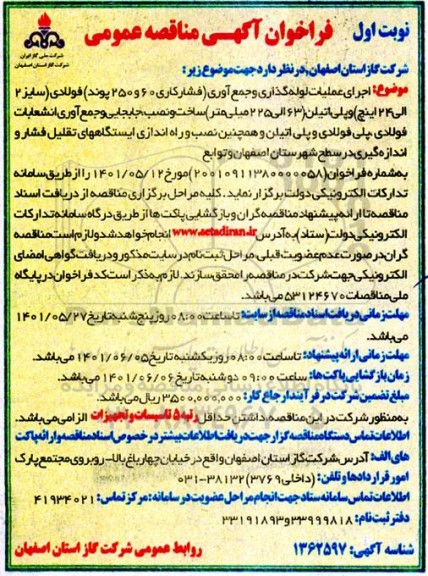 نوبت اول
فراخوان آگهی مناقصه عمومی
شرکت ملی گاز ایران
شرکت گاز استان اصفهان
شرکت گاز استان اصفهان, در نظر دارد جهت موضوع زیر:
موضوع: اجرای عملیات لوله گذاری و جمع آوری (فشار کاری ۶۰ و ۲۵۰ پوند) فولادی (سایز ۲
الی ۲۴ اینچ) و پلی اتیلن (۶۳ الی ۲۲۵ میلی متر) ساخت و نصب، جابجایی و جمع آوری انشعابات
فولادی ,پلی فولادی و پلی اتیلن و همچنین نصب و راه اندازی ایستگاههای تقلیل فشار و
اندازه گیری در سطح شهرستان اصفهان و توابع
به شماره فراخوان (۲۰۰۱۰۹۱۱۳۸۰۰۰۰۵۸) مورخ ۱۴۰۱/۰۵/۱۲ را از طریق سامانه
تدارکات الکترونیکی دولت برگزار نماید. کلیه مراحل برگزاری مناقصه از دریافت اسناد
مناقصه تا ارائه پیشنهاد مناقصه گران و بازگشایی پاکت ها از طریق درگاه سامانه تدارکات
الکترونیکی دولت (ستاد) به آدرس www.setadiran.ir انجام خواهد شد و لازم است مناقصه
گران در صورت عدم عضویت قبلی, مراحل ثبت نام در سایت مذکور و دریافت گواهی امضای
الکترونیکی جهت شرکت در مناقصه را محقق سازند. لازم به ذکر است کد فراخوان در پایگاه
ملی مناقصات ۵۳۱۲۴۶۷۰ می باشد.
مهلت زمانی دریافت اسناد مناقصه از سایت: تا ساعت ۰۸:۰۰ روز پنج شنبه تاریخ ۱۴۰۱/۰۵/۲۷
می باشد.
مهلت زمانی ارائه پیشنهاد: تا ساعت ۰۸:۰۰ روز یکشنبه تاریخ ۱۴۰۱/۰۶/۰۵ می باشد.
زمان بازگشایی پاکت ها: ساعت ۰۹:۰۰ دوشنبه تاریخ ۱۴۰۱/۰۶/۰۶ می باشد.
مبلغ تضمین شرکت در فرآیند ارجاع کار: ۳,۵۰۰,۰۰۰,۰۰۰ ریال می باشد.
به منظور شرکت در این مناقصه, داشتن حداقل رتبه ۵ تاسیسات و تجهیزات الزامی می باشد.
اطلاعات تماس دستگاه مناقصه گزار جهت دریافت اطلاعات بیشتر در خصوص اسناد مناقصه و ارائه پاکت
های الف: آدرس شرکت گاز استان اصفهان واقع در خیابان چهارباغ بالا- روبروی مجتمع پارک
امور قراردادها و تلفن: (داخلی ۳۷۶۹) ۳۸۱۳۲-۰۳۱
اطلاعات تماس سامانه ستاد جهت انجام مراحل عضویت در سامانه: مرکز تماس: ۴۱۹۳۴۰۲۱
دفتر ثبت نام: ۳۳۹۹۹۸۱۸ و ۳۳۱۹۱۸۹۳
شناسه آگهی: ۱۳۶۲۵۹۷
روابط عمومی شرکت گاز استان اصفهان